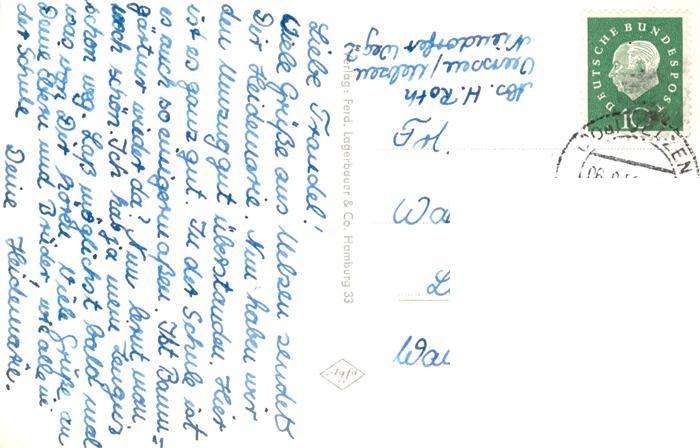 Liebe Traudel!
Viele Grüße aus Uelzen sendet
Dir Heidemarie. Nun haben wir
den Umzug gut überstanden. Hier
ist es ganz gut. In der Schule ist
es auch so einigermaßen. Ist Baum-
gärtner wieder da? Nun lernt man
noch schön. Ich hab ja mein Zeugnis
schon weg. Laß möglichst bald mal
was von Dir hören. Viele Grüße an
Deine Eltern und Brüder und alle in
der Schule Deine Heidemarie.
Verlag: Ferd. Lagerbauer & Co. Hamburg 33
Abs. H. Roth
Veerssen/Uelzen
Niendorfer Weg 2
DEUTSCHE BUNDESPOST
10